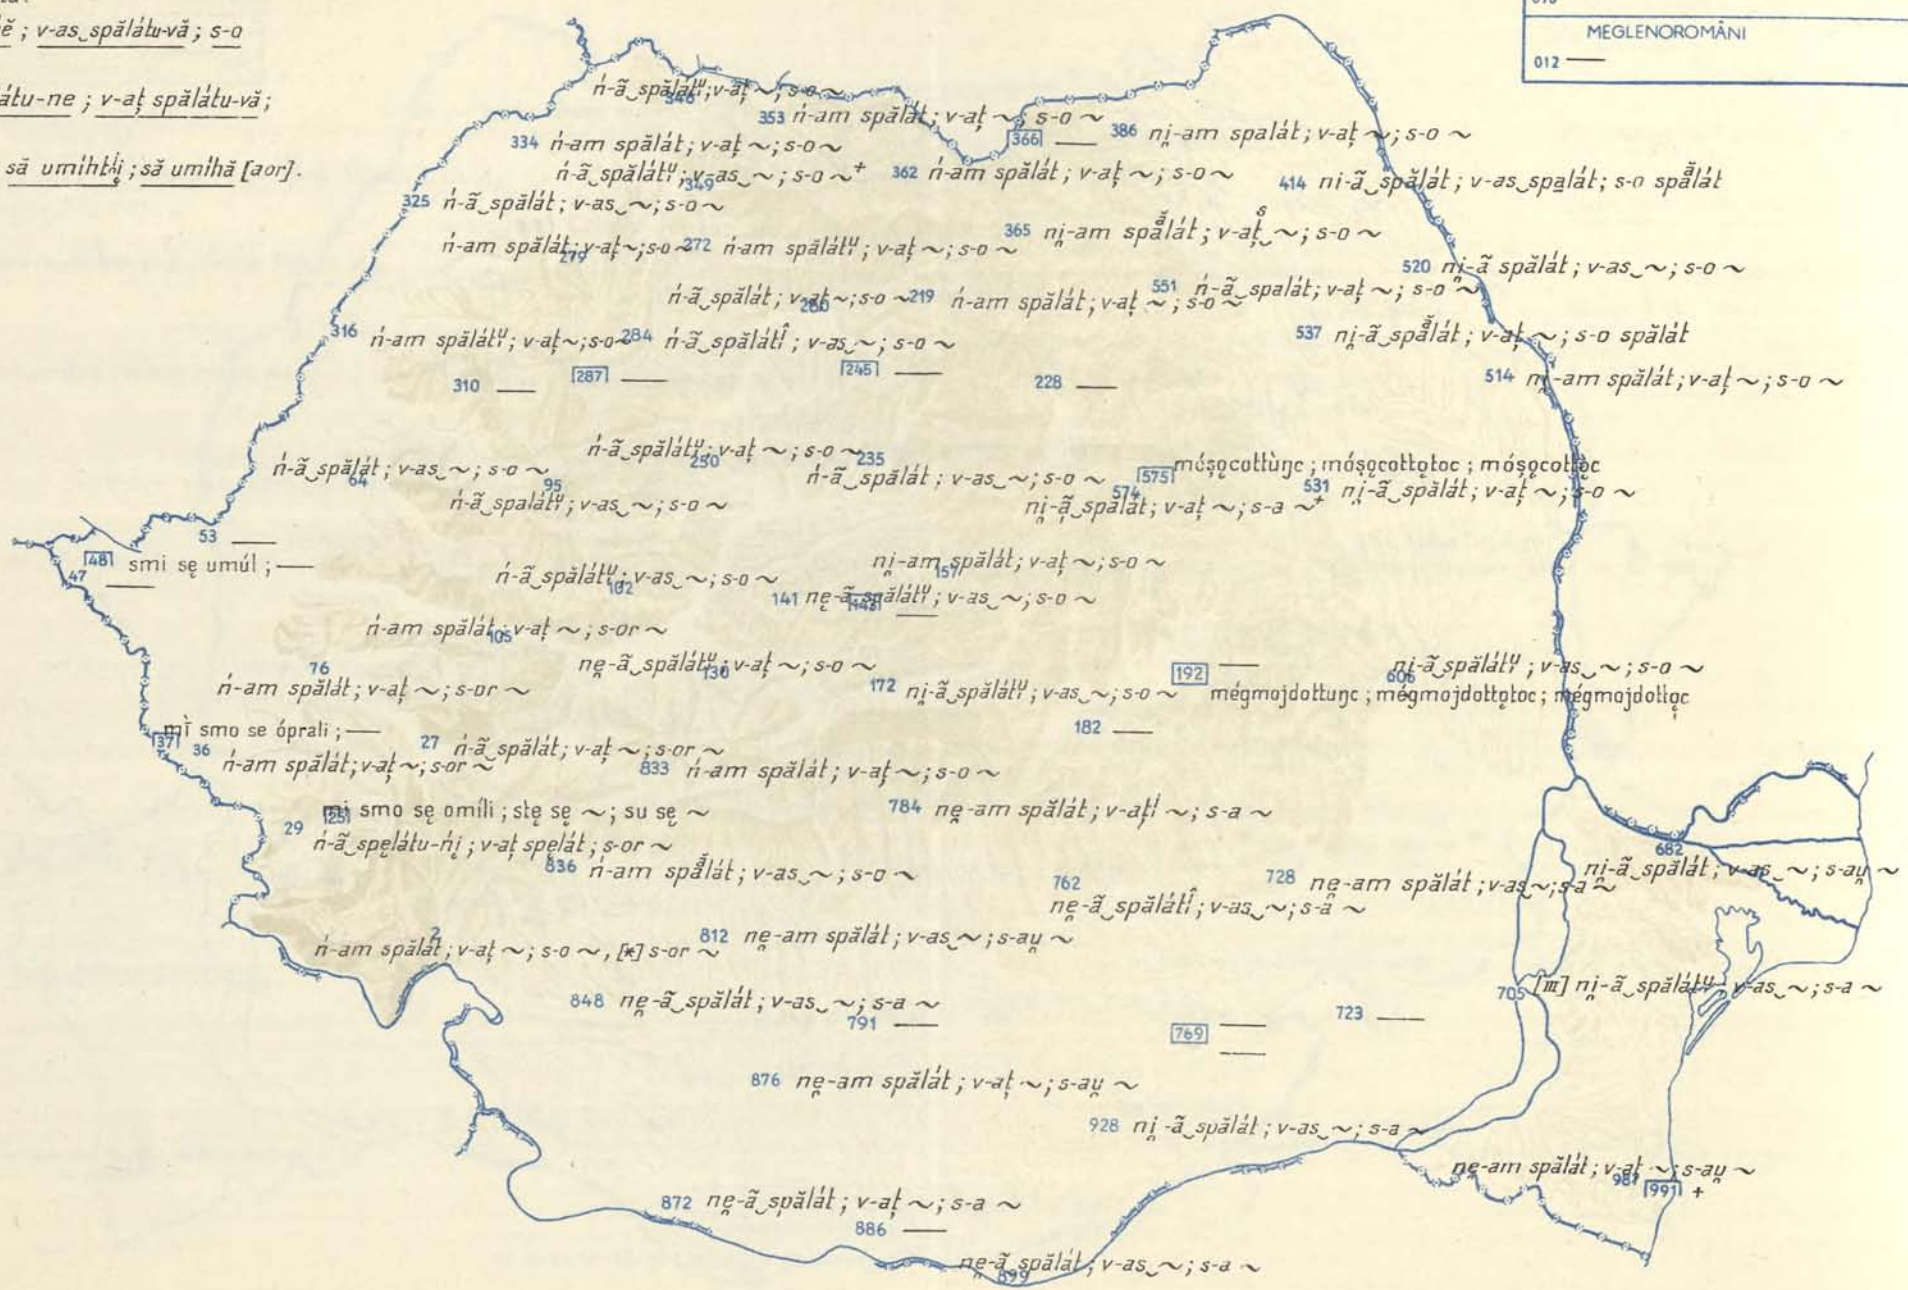 ĕ ; v-as‿spălátu-vă ; s-o
átu-ne ; v-aț spălátu-vă ;
să umihă [aor].
MEGLENOROMÂNI
012 —
ń-ã‿spălátᵘ; v-aț ~; s-o ~
346
353 ń-am spălát; v-aț ~; s-o ~
366 —
386 ni̯-am spalát; v-aț ~; s-o ~
334 ń-am spălát; v-aț ~; s-o ~
ń-ã‿spălátᵘ; v-as‿~; s-o ~+
349
362 ń-am spălát; v-aț ~; s-o ~
414 ni-ã‿spălát; v-as‿spalát; s-o spălát
325 ń-ã‿spălát; v-as‿~; s-o ~
365 ni̯-am spălát; v-aț‿~; s-o ~
ń-am spălát; v-aț ~; s-o ~
279
272 ń-am spălátᵘ; v-aț ~; s-o ~
520 ni̯-ã spălát; v-as‿~; s-o ~
ń-ã‿spălát; v-aț ~; s-o ~
260
219 ń-am spălát; v-aț ~; s-o ~
551 ń-ã‿spalát; v-aț ~; s-o ~
316 ń-am spălátᵘ; v-aț ~; s-o ~
284 ń-ã‿spălátî; v-as‿~; s-o ~
537 ni̯-ã‿spălát; v-aț ~; s-o spălát
310 —
287 —
245 —
228 —
514 ni̯-am spălát; v-aț ~; s-o ~
ń-ã‿spălátᵘ; v-aț ~; s-o ~
250
ń-ã‿spălát; v-as‿~; s-o ~
64
235
ń-ã‿spălát; v-as‿~; s-o ~
575 móșǫcottùŋc; móșǫcottǫtoc; móșǫcottǫc
95
ń-ã‿spalátᵘ; v-as‿~; s-o ~
574
ni̯-ã‿spălát; v-aț ~; s-a ~+
531 ni̯-ã‿spălát; v-aț ~; s-o ~
53 —
48 smi sę umúl ; —
47 —
ń-ã‿spălátᵘ; v-as‿~; s-o ~
102
ni̯-am spălát; v-aț ~; s-o ~
157
141 ne̯-ã‿spălátᵘ; v-as‿~; s-o ~
—
ń-am spălát; v-aț ~; s-or ~
105
ne̯-ã‿spălátᵘ; v-aț ~; s-o ~
130
192 —
ni̯-ã‿spălátᵘ; v-as‿~; s-o ~
606
76
ń-am spălát; v-aț ~; s-or ~
172 ni̯-ã‿spălátᵘ; v-as‿~; s-o ~
mégmojdottuŋc; mégmojdottǫtoc; mégmojdottǫc
182 —
37 mĩ smo se óprali ; —
36 ń-am spălát; v-aț ~; s-or ~
27 ń-ã‿spălát; v-aț ~; s-or ~
833 ń-am spălát; v-aț ~; s-o ~
25 mi smo sę omíli ; stę sę ~; su sę ~
784 ne̯-am spălát; v-aț ~; s-a ~
29 ń-ã‿spęlátu-ńi̯; v-aț spęlát; s-or ~
836 ń-am spălát; v-as‿~; s-o ~
682
ni̯-ã‿spălát; v-as‿~; s-au̯ ~
762
ne̯-ã‿spălátî; v-as‿~; s-a ~
728 ne̯-am spălát; v-as‿~; s-a ~
2
ń-am spălát; v-aț ~; s-o ~, [*] s-or ~
812 ne̯-am spălát; v-as‿~; s-au̯ ~
848 ne̯-ã‿spălát; v-as‿~; s-a ~
705 [III] ni̯-ã‿spălátᵘ; v-as‿~; s-a ~
791 —
769 —
—
723 —
876 ne̯-am spălát; v-aț ~; s-au̯ ~
928 ni̯-ã‿spălát; v-as‿~; s-a ~
ne̯-am spălát; v-aț ~; s-au̯ ~
987
991 +
872 ne̯-ã‿spălát; v-aț ~; s-a ~
886 —
ne̯-ã‿spălát; v-as‿~; s-a ~
899